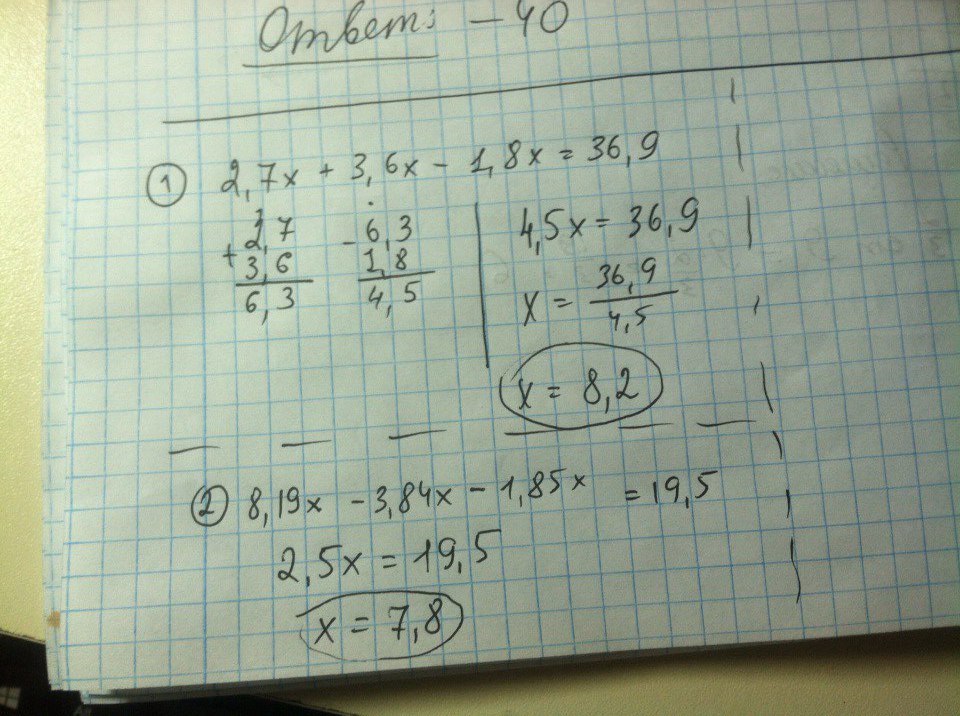 Ответ: -40
1 2,7x + 3,6x - 1,8x = 36,9
1
2,7
+ 3,6
6,3
- 6,3
1,8
4,5
4,5x = 36,9
x = 36,9 / 4,5
x = 8,2
2 8,19x - 3,84x - 1,85x = 19,5
2,5x = 19,5
x = 7,8